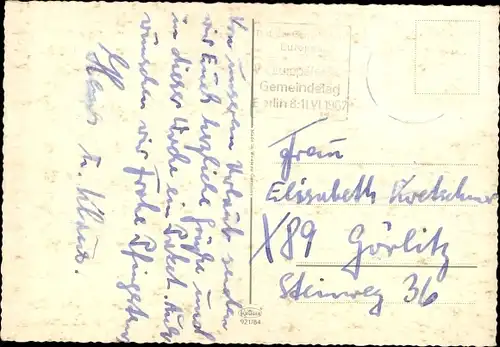 Von unserem Urlaub senden
wir Euch herzliche Grüße und
in dieser Woche ein Paket.
wünschen wir Frohe Pfingsten
Klaus.
Europa
Gemeindetag
Berlin 8.-11.VI.1967
Frau
Elisabeth Kretschmer
X89 Görlitz
Steinweg 36
Krüger
921/64